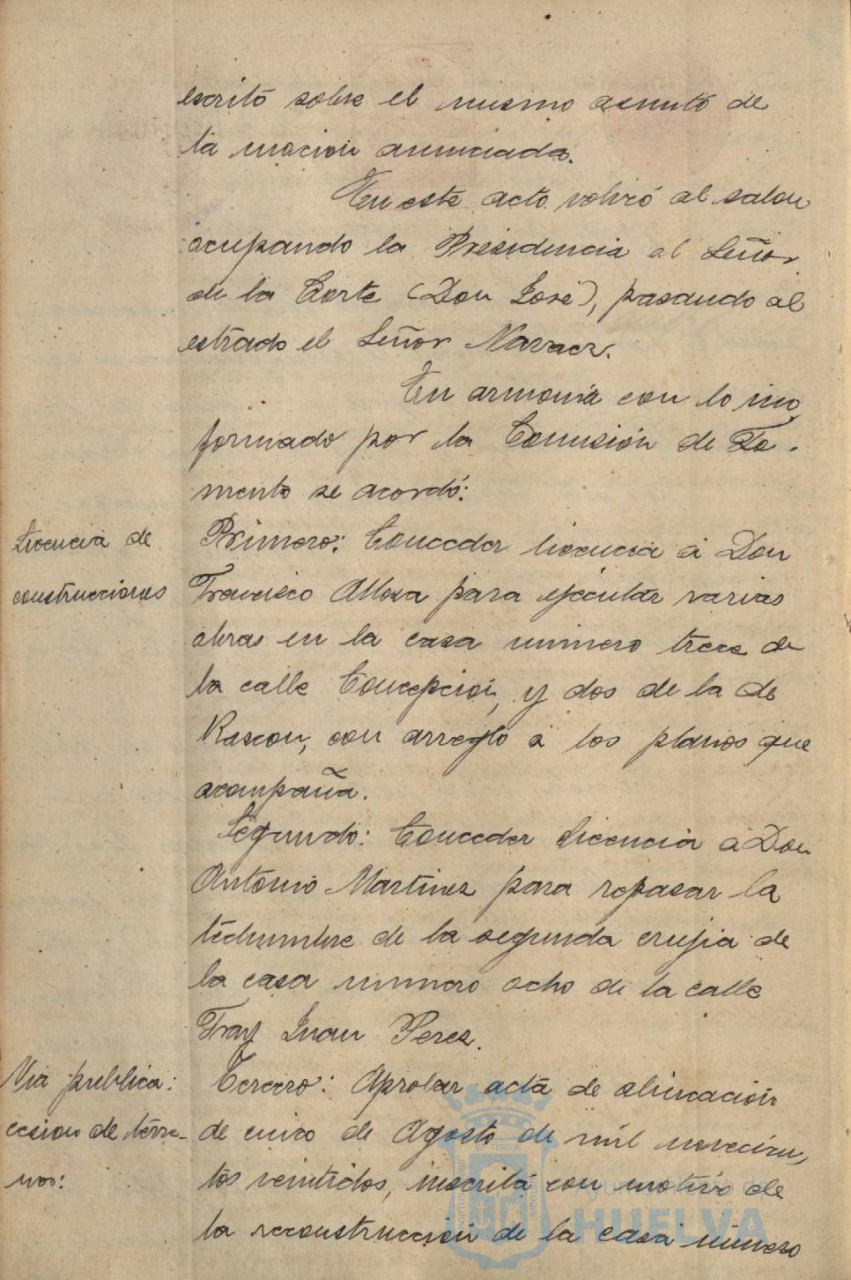 escrito sobre el mismo asunto de
la mocion anunciada.
En este acto volvió al salon
ocupando la Presidencia el Señor
de la Corte (Don José), pasando al
estrado el Señor
En armonia con lo in-
formado por la Comisión de Fo-
mento se acordó:
Licencia de
construcciones
Primero: Conceder licencia á Don
Francisco para ejecutar varias
obras en la casa número trece de
la calle Concepcion, y dos de la de
Rascon, con arreglo á los planos que
acompaña.
Segundo: Conceder licencia á Don
Antonio Martinez para repasar la
techumbre de la segunda crujia de
la casa número ocho de la calle
Fray Juan Perez.
Via publica:
cesion de terre-
nos:
Tercero: Aprobar acta de alineación
de cinco de Agosto de mil novecien-
tos veintidos, inscrita con motivo de
la reconstrucción de la casa número
Ayuntamiento de
HUELVA